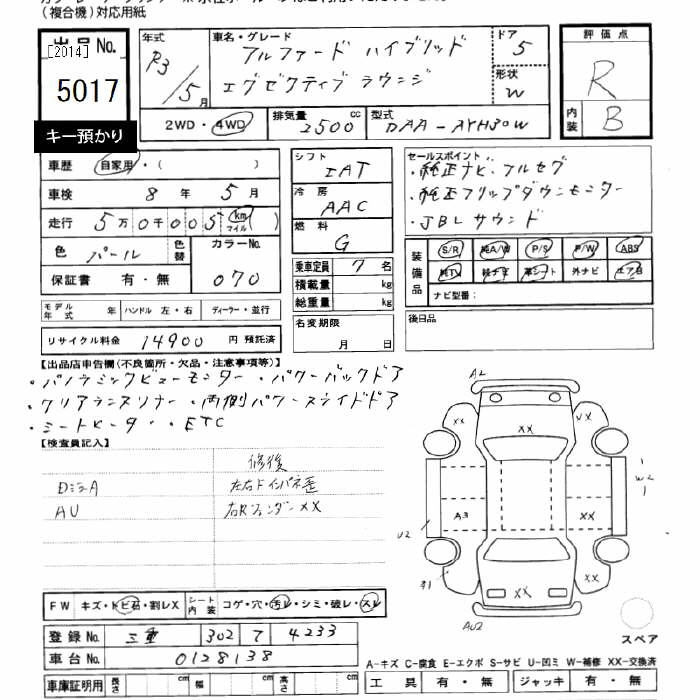 (複合機)対応用紙
出品No.
[2014]
5017
キー預かり
年式 R3/5月
車名・グレード アルファード ハイブリッド
エグゼクティブ ラウンジ
ドア 5
形状 W
2WD・4WD
排気量 2500 cc
型式 DAA-AYH30W
評価点
R
内装 B
車歴 自家用・( )
車検 8年 5月
走行 5万0千005 km マイル ( )
色 パール 色替 カラーNo.
保証書 有・無 070
シフト IAT
冷房 AAC
燃料 G
乗車定員 7名
積載量 kg
総重量 kg
名変期限
月 日
セールスポイント
・純正ナビ・フルセグ
・純正フリップダウンモニター
・JBLサウンド
装備品 S/R 純A/W P/S P/W ABS
純TV 純ナビ 革シート 外ナビ エアB
ナビ型番:
後日品
モデル年式 年 ハンドル 左・右 ディーラー・並行
リサイクル料金 14900 円 預託済
【出品店申告欄(不良箇所・欠品・注意事項等)】
・パノラミックビューモニター・パワーバックドア
・クリアランスソナー・両側パワースライドドア
・シートヒーター・ETC
【検査員記入】
修後
DミラーA 左右Fインパネ歪
AU 右Rフェンダー××
FW キズ・トビ石・割レX シート内装 コゲ・穴・汚レ・シミ・破レ・スレ
登録No. 三重 302 7 4233
車台No. 0128138
車庫証明用 長さ cm 幅 cm 高さ cm
A2
XX
XX
UX
W2
A3
XX
U2
XX
XX
AU2
スペア
A-キズ C-腐食 E-エクボ S-サビ U-凹ミ W-補修 XX-交換済
工具 有・無 ジャッキ 有・無